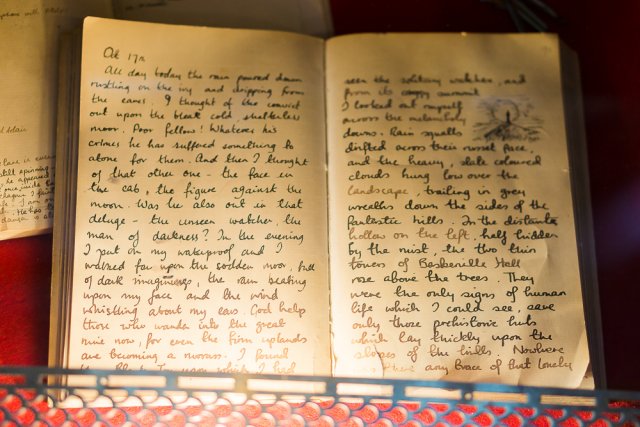 Oct 17th
All day today the rain poured down
rustling on the ivy and dripping from
the eaves. I thought of the convict
out upon the bleak cold, shelterless
moor. Poor fellow! Whatever his
crimes he has suffered something to
atone for them. And then I thought
of that other one - the face in
the cab, the figure against the
moon. Was he also out in that
deluge - the unseen watcher, the
man of darkness? In the evening
I put on my waterproof and I
walked far upon the sodden moor, full
of dark imaginings, the rain beating
upon my face and the wind
whistling about my ears. God help
those who wander into the great
mire now, for even the firm uplands
are becoming a morass. I found
which I had
seen the solitary watcher, and
from its craggy summit
I looked out myself
across the melancholy
downs. Rain squalls
drifted across their russet face,
and the heavy, slate coloured
clouds hung low over the
landscape, trailing in grey
wreaths down the sides of the
fantastic hills. In the distant
hollow on the left, half hidden
by the mist, the two thin
towers of Baskerville Hall
rose above the trees. They
were the only signs of human
life which I could see, save
only those prehistoric huts
which lay thickly upon the
slopes of the hills. Nowhere
there any trace of that lonely